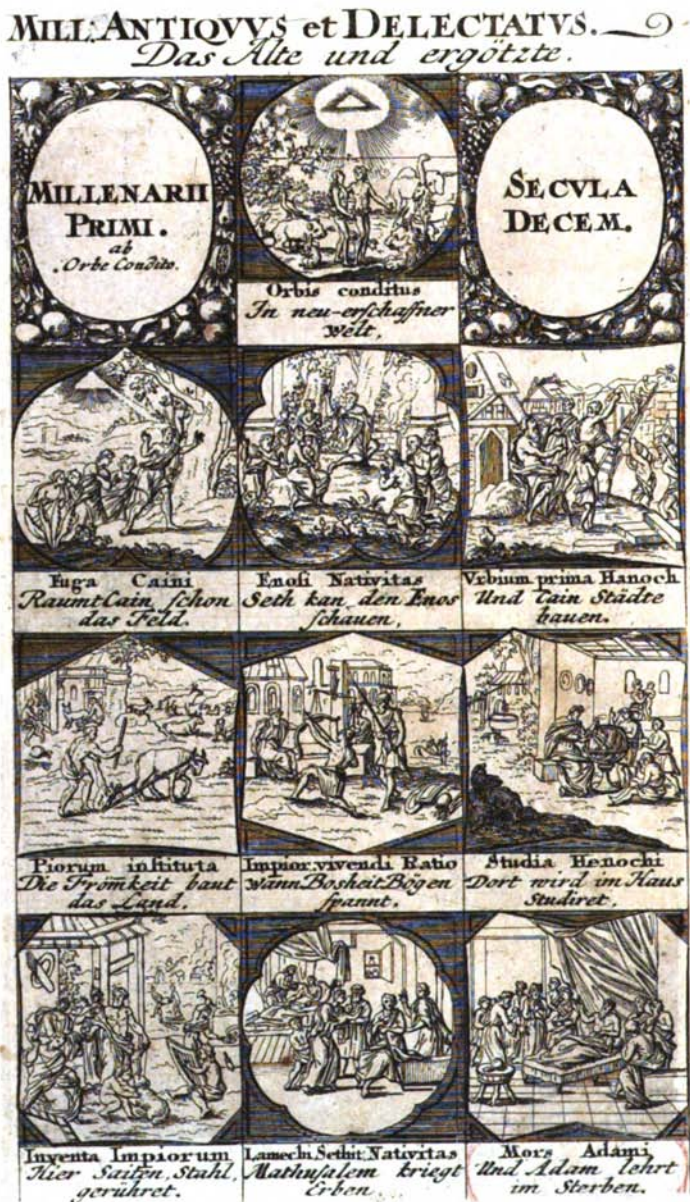 MILL: ANTIQVVS et DELECTATVS.
Das Alte und ergötzte.
MILLENARII
PRIMI.
ab
Orbe Condito.
SECVLA
DECEM.
Orbis conditus
In neu-erschaffner
Welt,
Fuga Caini
Raumt Cain schon
das Feld.
Enosi Nativitas
Seth kan den Enos
schauen,
Vrbium prima Hanoch
Und Cain Städte
bauen.
Piorum instituta
Die From̅keit baut
das Land.
Impior. vivendi Ratio
wann Bosheit Bögen
spannt.
Studia Henochi
Dort wird im Haus
Studiret,
Inventa Impiorum
Hier Saiten, Stahl,
gerühret.
Lamechi Sethit Nativitas
Mathusalem kriegt
Erben,
Mors Adami
Und Adam lehrt
im Sterben.